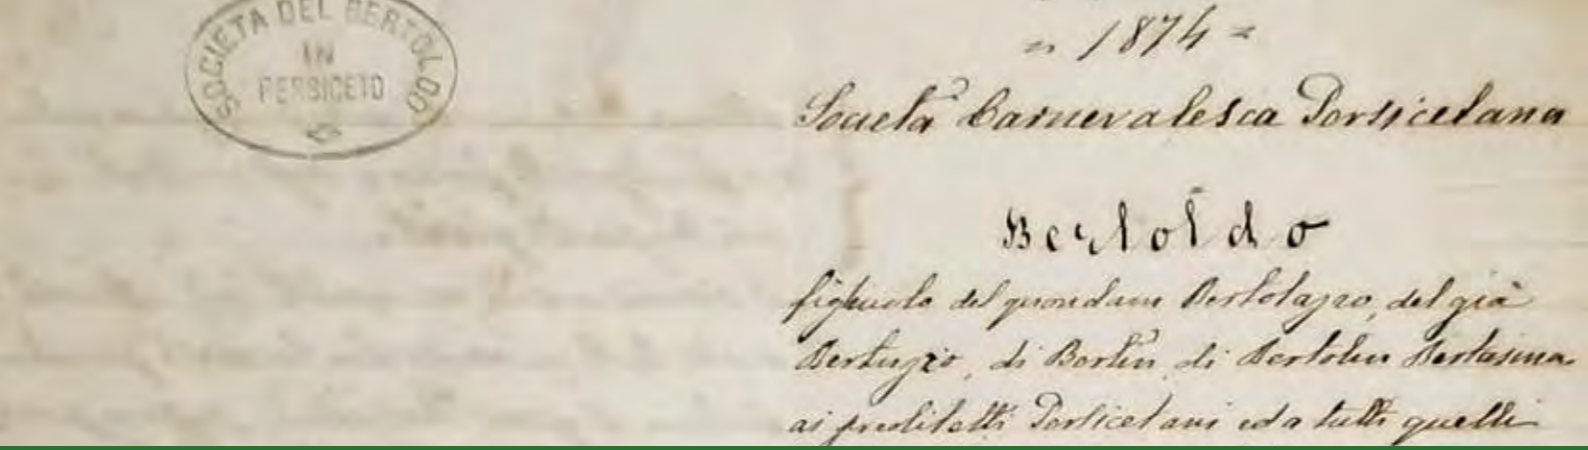 SOCIETA DEL BERTOLDO
IN
PERSICETO
= 1874 =
Società Carnevalesca Persicetana
Bertoldo
figliuolo del quondam Bertolazzo, del già
Bertuzzo, di Bertin, di Bertolin Bertasina
ai prediletti Persicetani ed a tutti quelli